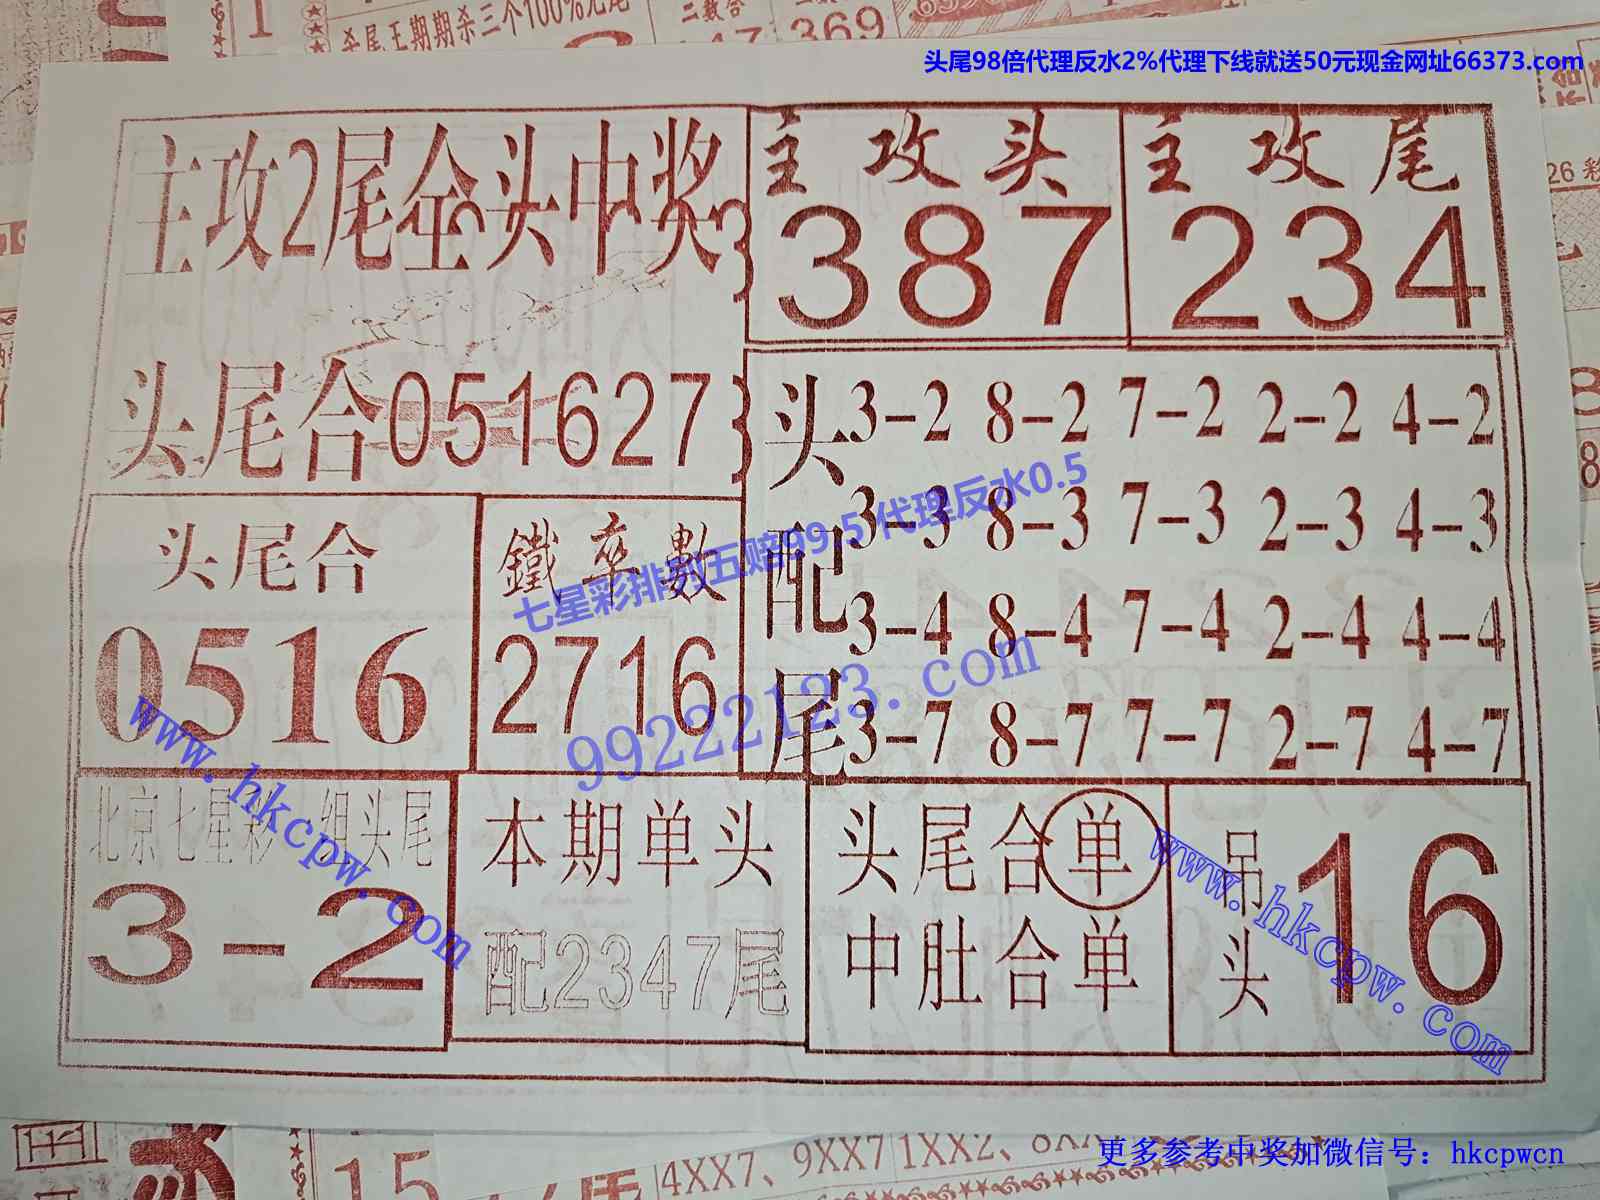 杀尾王期期杀三个100%无尾
二数合
369
头尾98倍代理反水2%代理下线就送50元现金网址66373.com
主攻2尾全头中奖
主攻头
387
主攻尾
234
头尾合051627
头配尾
3-2 8-2 7-2 2-2 4-2
3-3 8-3 7-3 2-3 4-3
3-4 8-4 7-4 2-4 4-4
3-7 8-7 7-7 2-7 4-7
头尾合
0516
鐵率數
2716
七星彩排列五赔99.5代理反水0.5
99222123.com
www.hkcpw.com
北京七星彩一组头尾
3-2
本期单头
配2347尾
头尾合单
中肚合单
吊头
16
www.hkcpw.com
15
4XX7、9XX7
1XX2、8XX
更多参考中奖加微信号：hkcpwcn